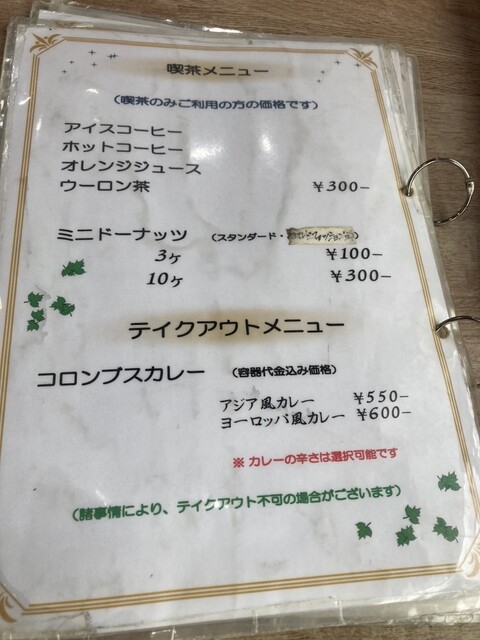 喫茶メニュー
(喫茶のみご利用の方の価格です)
アイスコーヒー
ホットコーヒー
オレンジジュース
ウーロン茶 ¥300-
ミニドーナッツ (スタンダード・
3ヶ ¥100-
10ヶ ¥300-
テイクアウトメニュー
コロンブスカレー (容器代金込み価格)
アジア風カレー ¥550-
ヨーロッパ風カレー ¥600-
※ カレーの辛さは選択可能です
(諸事情により、テイクアウト不可の場合がございます)